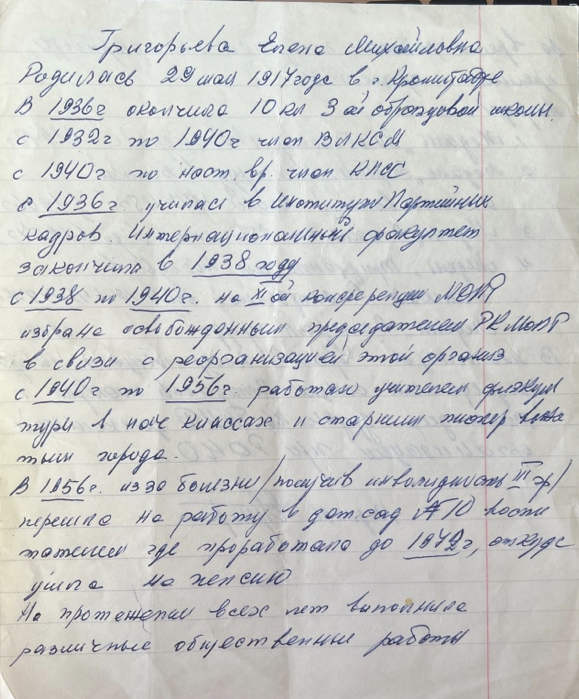 Григорьева Елена Михайловна
Родилась 29 мая 1917 года в г. Кронштадте
В 1936г окончила 10 кл 3 ей образцовой школы
с 1932г по 1940г член ВЛКСМ
с 1940г по наст. вр. член КПСС
в 1936г. училась в Институте Партийных
кадров. Интернациональный факультет
закончила в 1938 году
с 1938 по 1940г. на XI ой конференции МОПР
избрана освобожденным председателем РК МОПР
в связи с реорганизацией этой организ
с 1940г по 1956г. работаю учителем физкуль
туры в нач классах и старшим пионер вожа
тым города.
В 1956г. из за болезни /получив инвалидность III гр/
перешла на работу в дет. сад №10 воспи
тателем где проработала до 1972г, откуда
ушла на пенсию
На протяжении всех лет выполняла
различные общественные работы